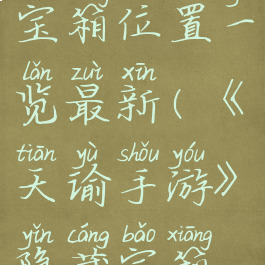 宝箱位置一
lǎn zuì xīn
览最新(《
tiān yù shǒu yóu
天谕手游》
yǐn cáng bǎo xiāng
隐藏宝箱